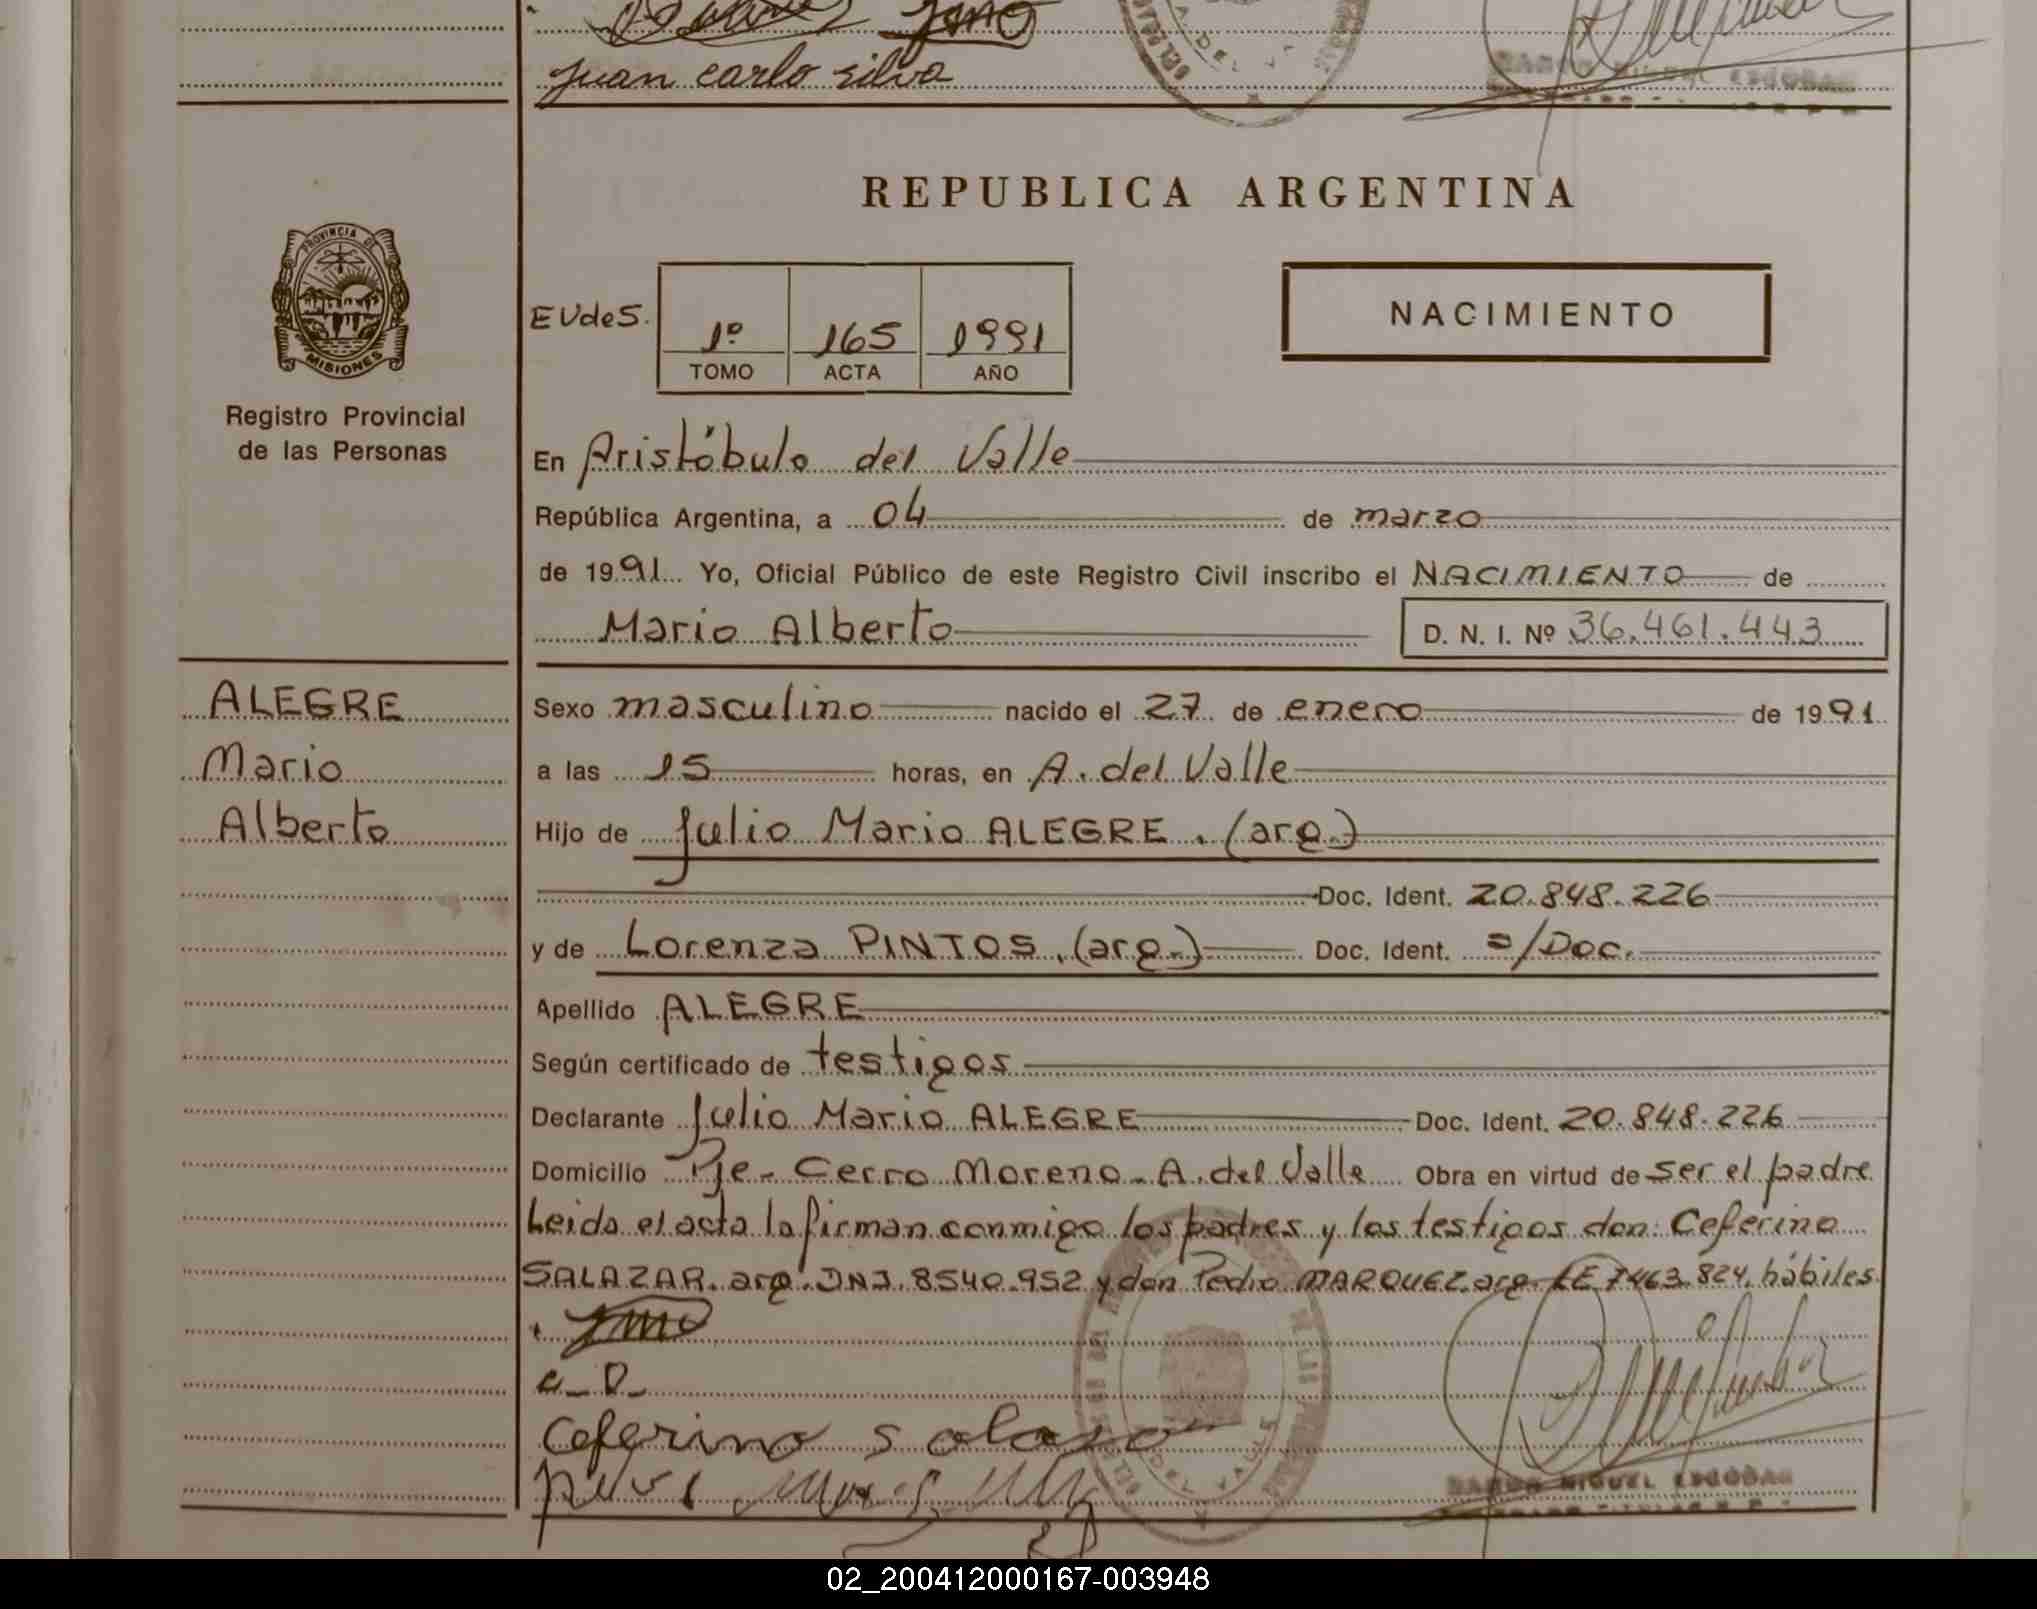 Juan carlo silva
REPUBLICA ARGENTINA
PROVINCIA DE
MISIONES
Registro Provincial
de las Personas
EUdeS.
1º 165 1991
TOMO ACTA AÑO
NACIMIENTO
En Aristóbulo del Valle
República Argentina, a 04 de marzo
de 1991 Yo, Oficial Público de este Registro Civil inscribo el NACIMIENTO de
Mario Alberto D. N. I. Nº 36.461.443
ALEGRE
Mario
Alberto
Sexo masculino nacido el 27 de enero de 1991
a las 15 horas, en A. del Valle
Hijo de Julio Mario ALEGRE. (arg.)
Doc. Ident. 20.848.226
y de Lorenza PINTOS, (arg.) Doc. Ident. =/Doc.
Apellido ALEGRE
Según certificado de testigos
Declarante Julio Mario ALEGRE Doc. Ident. 20.848.226
Domicilio Pje- Cerro Moreno- A. del Valle Obra en virtud de ser el padre
Leida el acta la firman conmigo los padres y los testigos don: Ceferino
SALAZAR. arg. DNI. 8540.952 y don Pedro MARQUEZ arg. LE 7463.824. hábiles
Ceferino salasar
DEL VALLE
RAMON MIGUEL ESCOBAR
02_200412000167-003948